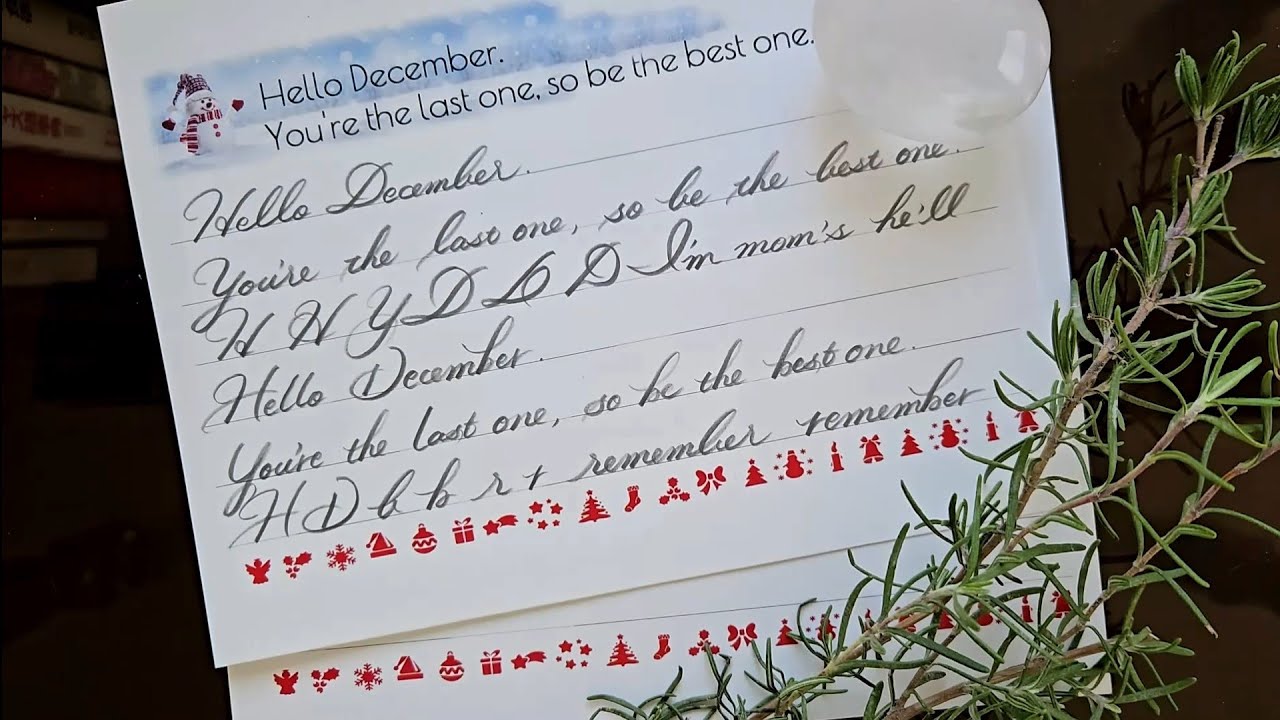 Hello December.
You're the last one, so be the best one.
Hello December.
You're the last one, so be the best one.
H H Y D L D I'm mom's he'll
Hello December.
You're the last one, so be the best one.
H D b b r r remember remember